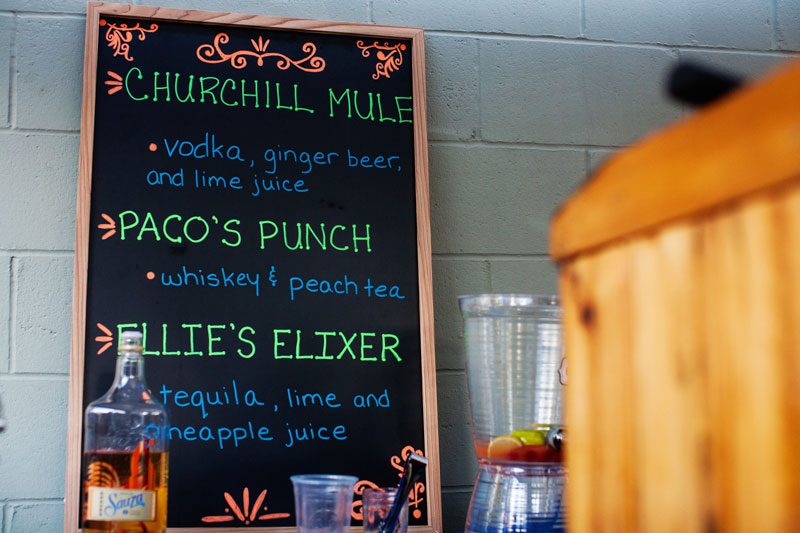 CHURCHILL MULE
• vodka, ginger beer,
and lime juice
PACO'S PUNCH
• whiskey & peach tea
ELLIE'S ELIXER
tequila, lime and
pineapple juice
Sauza